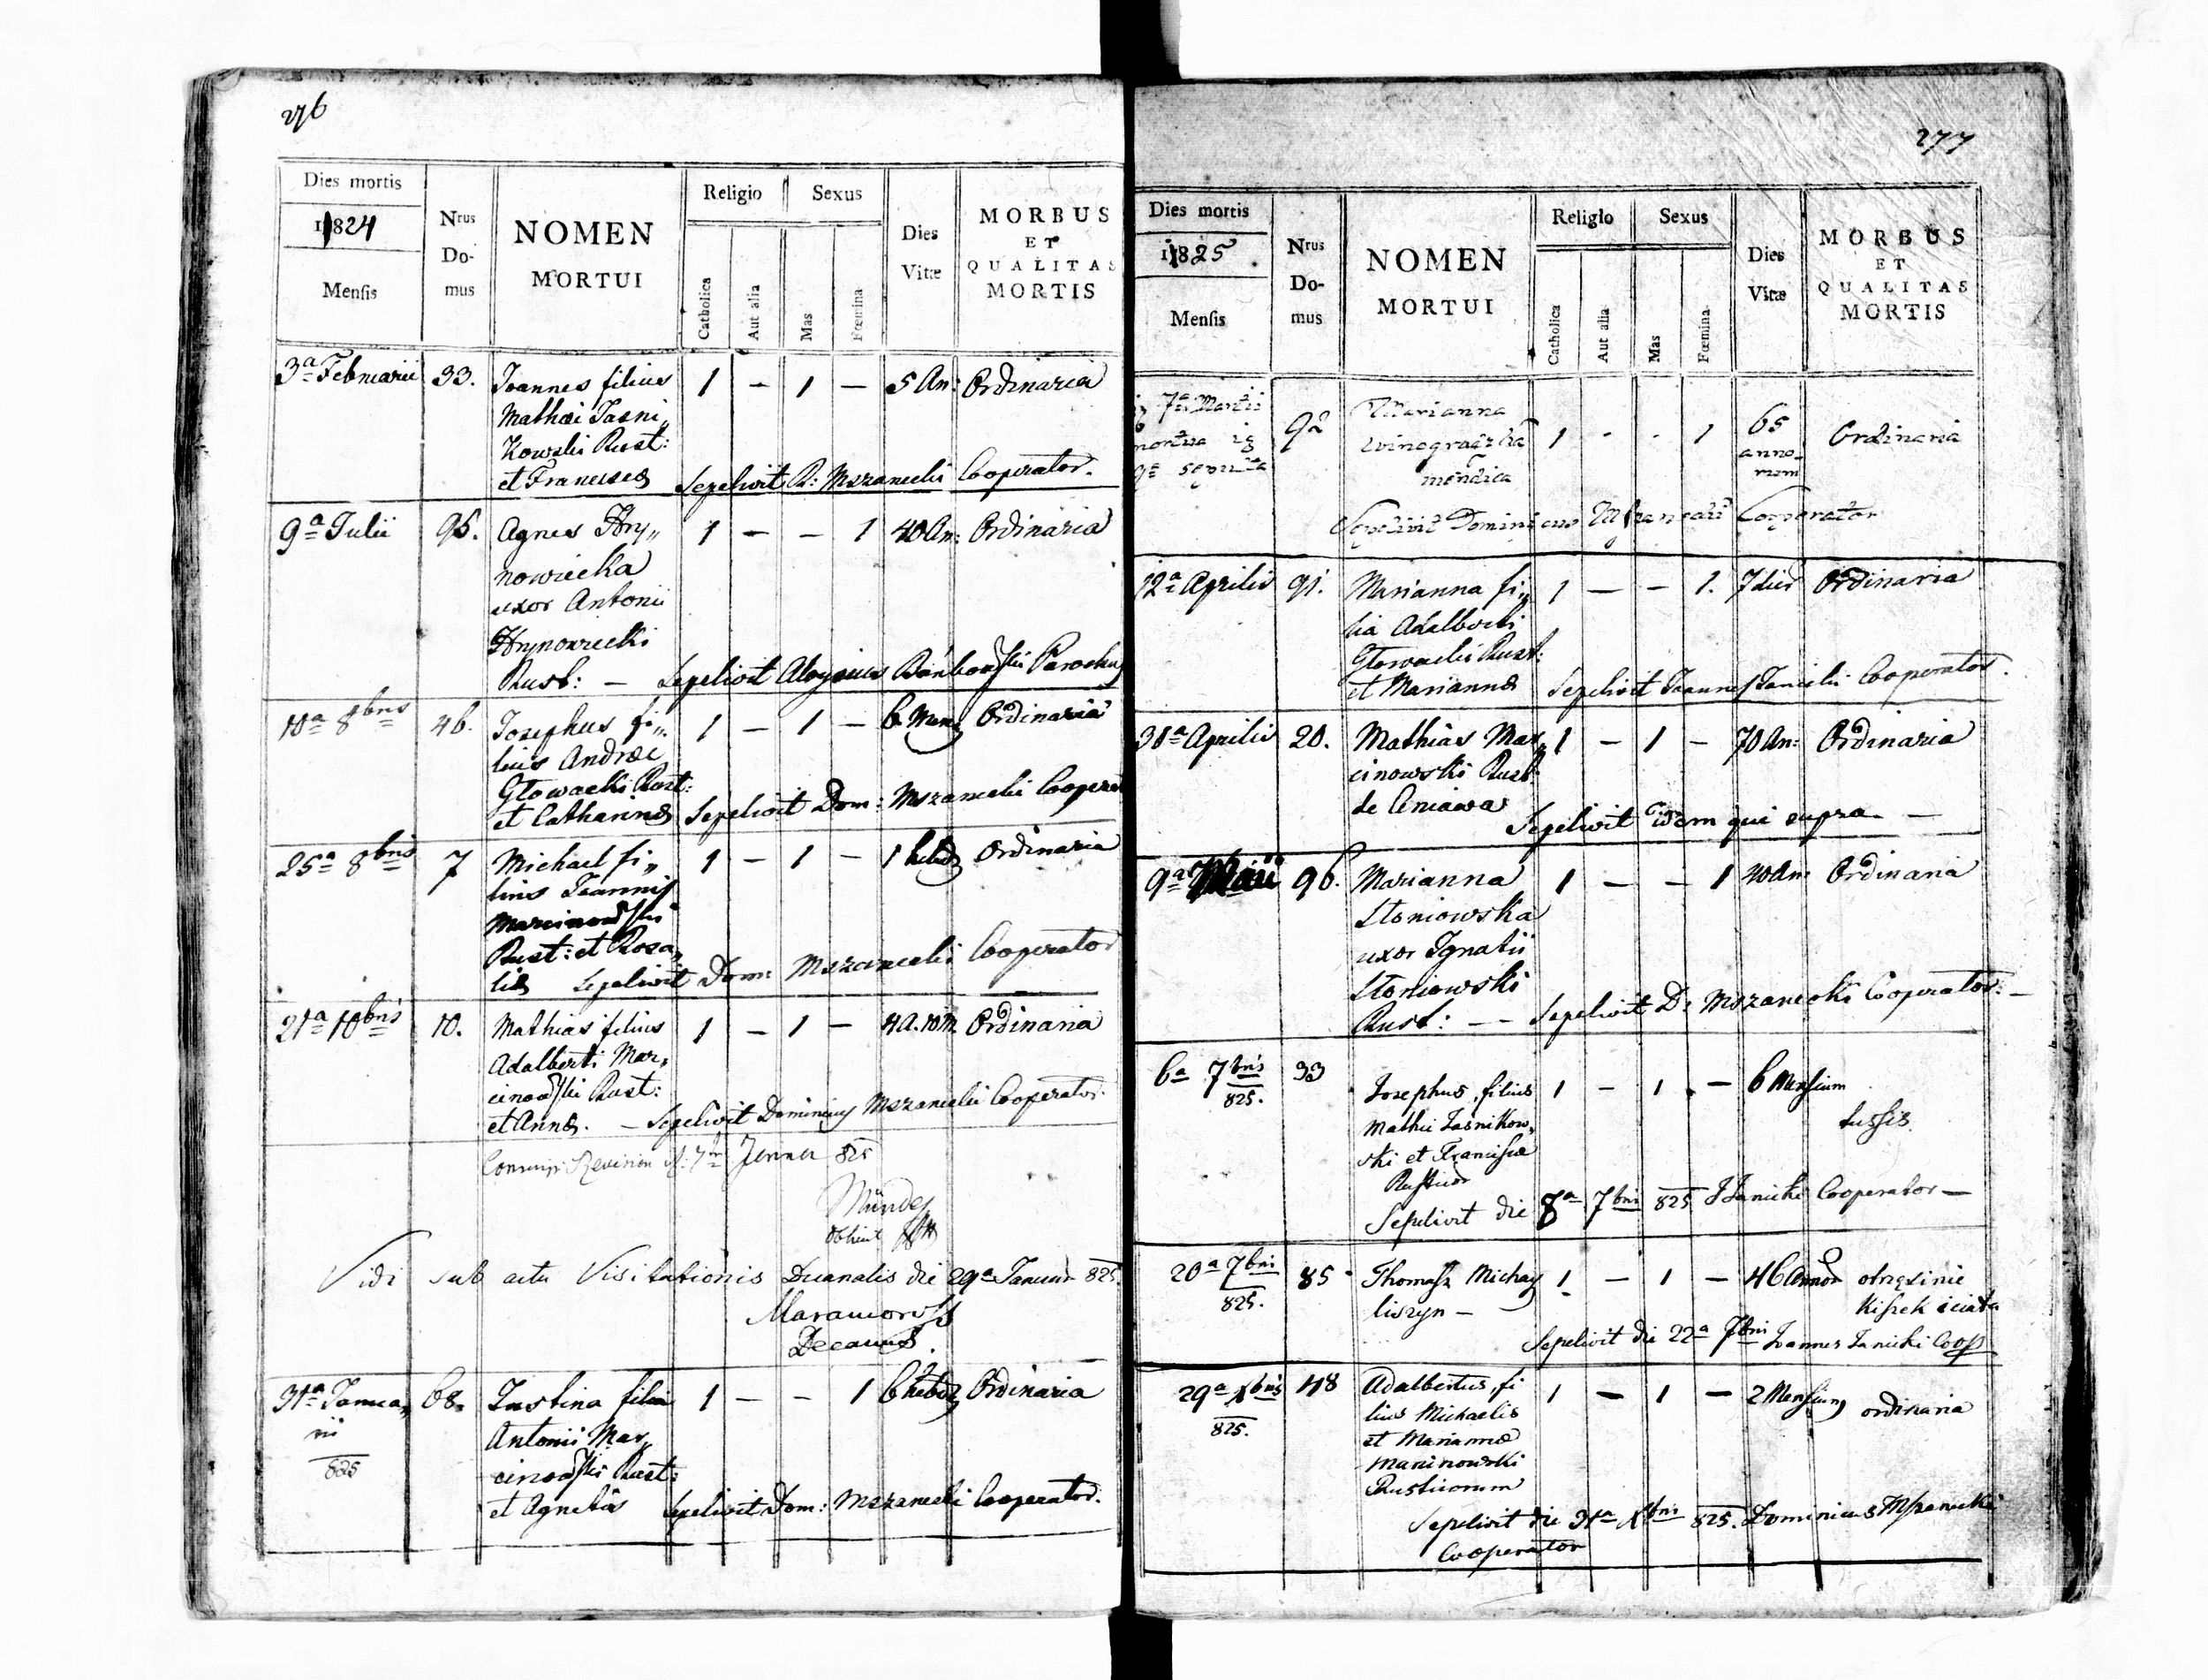 276
Dies mortis
1824
Mensis
Nrus
Do-
mus
NOMEN
MORTUI
Religio
Catholica
Aut alia
Sexus
Mas
Fœmina
Dies
Vitæ
MORBUS
ET
QUALITAS
MORTIS
3a Februarii 33. Joannes filius 1 — 1 — 5 An: Ordinaria
Mathæi Jasni„
kowski Rust:
et Franciscæ Sepelivit D: Mszanecki Cooperator.
9a Julii 95. Agnes Hry„ 1 — — 1 40 An: Ordinaria
nowiecka
uxor Antonii
Hrynowiecki
Rust: — Sepelivit Aloysius Parochus
10a 8bris 46. Josephus fi„ 1 — 1 — 6 Mens Ordinaria
lius Andreæ
Głowacki Rust:
et Catharinæ Sepelivit Dom: Mszanecki Cooperat
25a 8bris 7 Michael fi„ 1 — 1 — 1 hebd Ordinaria
lius Joannis
Marcinowski
Rust: et Rosa„
liæ Sepelivit Dom: Mszanecki Cooperator
21a 10bris 10. Mathias filius 1 — 1 — 4 A. 10 M. Ordinaria
Adalberti Mar„
cinowski Rust:
et Annæ. — Sepelivit Dominicus Mszanecki Cooperator.
Revision Jenner 825
Vidi sub actu Visitationis Decanalis die 29a Januar 825.
Decanus.
31a Janua„ 68. Justina filia 1 — — 1 6 hebd Ordinaria
rii Antonii Mar„
825 cinowski Rust:
et Agnetis Sepelivit Dom: Mszanecki Cooperator.
277
Dies mortis
1825.
Mensis
Nrus
Do-
mus
NOMEN
MORTUI
Religio
Catholica
Aut alia
Sexus
Mas
Fœmina
Dies
Vitæ
MORBUS
ET
QUALITAS
MORTIS
7a Martii 92 Marianna 1 - - 1 65 Ordinaria
mortua winogradzka anno-
9a sepulta mendica rum
Sepelivit Dominicus Cooperator
12a Aprilis 91. Marianna fi„ 1 — — 1. 7 dier Ordinaria
lia Adalberti
Głowacki Rust:
et Mariannæ Sepelivit Joannes Janicki Cooperator.
30a Aprilis 20. Mathias Mar„ 1 — 1 — 70 An: Ordinaria
cinowski Rust:
de Cniawa
Sepelivit idem qui supra —
9a Maii 96. Marianna 1 — — 1 40 An: Ordinaria
Słoniowska
uxor Ignatii
Słoniowski
Rust: — — Sepelivit D: Mszanecki Cooperator. —
6a 7bris 33 Josephus, filius 1 — 1 . — 6 Mensium
825. Mathei Jasnikow„ tussis.
ski et Franciscæ
Rusticor
Sepelivit die 8a 7bris 825 J Janicki Cooperator —
20a 7bris 85 Thomasz Michay 1 — 1 — 46 Annor
825. liszyn — kiszek
Sepelivit die 22a 7bris Joannes Janicki Coop
29a Xbris 48 Adalbertus, fi 1 — 1 — 2 Mensium ordinaria
825. lius Michaelis
et Mariannæ
Marcinowski
Rusticorum
Sepelivit die 31a Xbris 825. Dominicus Mszanecki
Cooperator